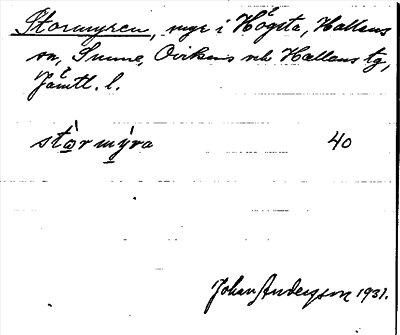 Stormyren, myr i Högsta, Hallens
sn, Sunne, Ovikens och Hallens tg,
Jämtl. l.
stòrmýra 40
Johan Anderson 1931.